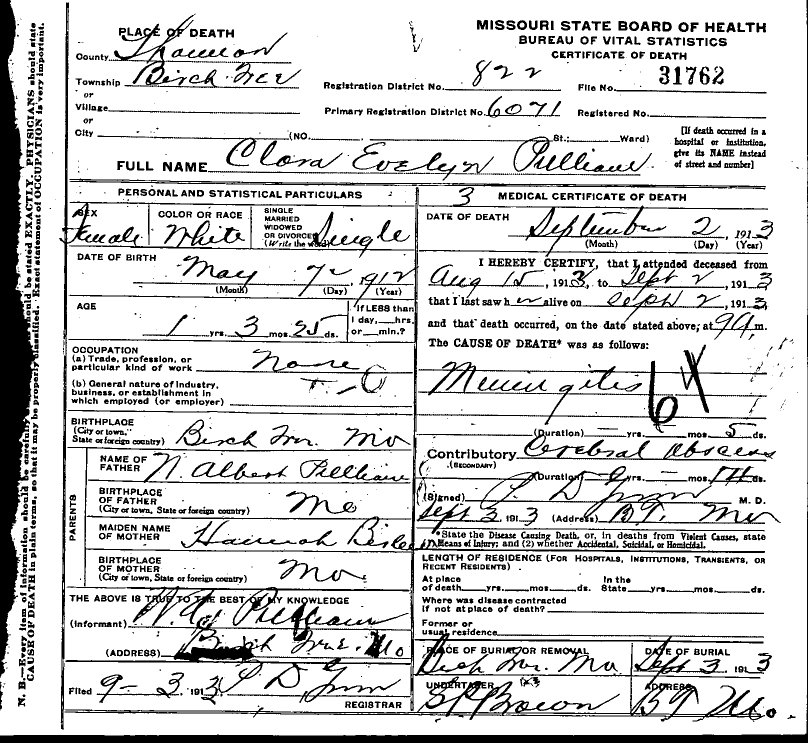 MISSOURI STATE BOARD OF HEALTH
BUREAU OF VITAL STATISTICS
CERTIFICATE OF DEATH
PLACE OF DEATH
County Shannon
Township Birch Tree
or
Village
or
City (NO. St.; Ward)
Registration District No. 822
File No. 31762
Primary Registration District No. 6071
Registered No.
[If death occurred in a
hospital or institution,
give its NAME instead
of street and number]
FULL NAME Clora Evelyn Pulliam
PERSONAL AND STATISTICAL PARTICULARS
SEX Female
COLOR OR RACE White
SINGLE
MARRIED
WIDOWED
OR DIVORCED
(Write the word) Single
DATE OF BIRTH May 7 1912
(Month) (Day) (Year)
AGE 1 yrs. 3 mos. 25 ds.
If LESS than
1 day, hrs.
or min.?
OCCUPATION
(a) Trade, profession, or
particular kind of work None
(b) General nature of industry,
business, or establishment in
which employed (or employer)
BIRTHPLACE
(City or town,
State or foreign country) Birch Tree Mo
PARENTS
NAME OF
FATHER N. Albert Pulliam
BIRTHPLACE
OF FATHER
(City or town, State or foreign country) Mo
MAIDEN NAME
OF MOTHER Hannah
BIRTHPLACE
OF MOTHER
(City or town, State or foreign country) Mo.
THE ABOVE IS TRUE TO THE BEST OF MY KNOWLEDGE
(Informant) Pulliam
(ADDRESS) Birch Tree Mo
Filed 9-3 1913 REGISTRAR
3 MEDICAL CERTIFICATE OF DEATH
DATE OF DEATH September 2, 1913
(Month) (Day) (Year)
I HEREBY CERTIFY, that I attended deceased from
Aug 15, 1913, to Sept 2, 1913
that I last saw her alive on Sept 2, 1913,
and that death occurred, on the date stated above, at 9 A m.
The CAUSE OF DEATH* was as follows:
Meningitis
64
(Duration) — yrs. — mos. 5 ds.
Contributory Cerebral Abscess
(SECONDARY)
(Duration) yrs. — mos. ds.
(Signed) M. D.
Sept 3 1913 (Address) B.T. Mo
*State the Disease Causing Death, or, in deaths from Violent Causes, state
Means of Injury; and (2) whether Accidental, Suicidal, or Homicidal.
LENGTH OF RESIDENCE (FOR HOSPITALS, INSTITUTIONS, TRANSIENTS, OR
RECENT RESIDENTS)
At place
of death yrs. mos. ds.
In the
State yrs. mos. ds.
Where was disease contracted
if not at place of death?
Former or
usual residence
PLACE OF BURIAL OR REMOVAL Birch Tree Mo
DATE OF BURIAL Sept 3 1913
UNDERTAKER Brown
ADDRESS BT Mo.
N. B.—Every item of information should be carefully
be stated EXACTLY. PHYSICIANS should state
CAUSE OF DEATH in plain terms, so that it may be properly classified. Exact statement of OCCUPATION is very important.